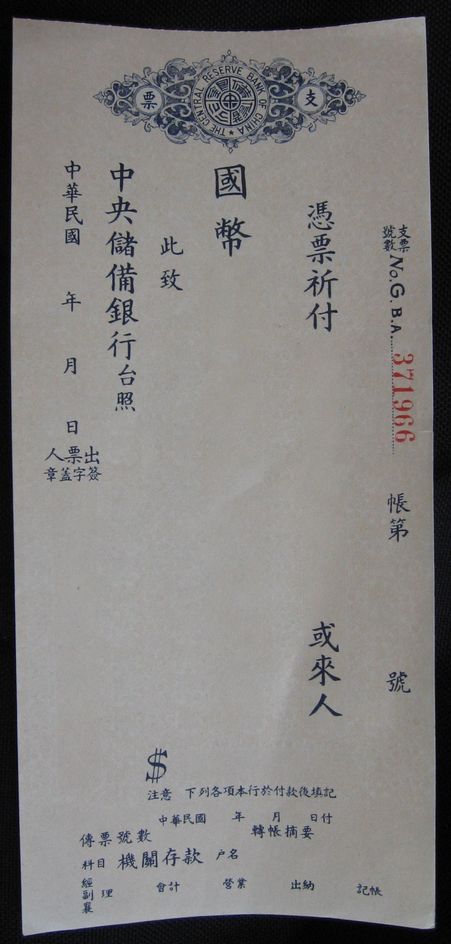 支票
THE CENTRAL RESERVE BANK OF CHINA
支票號數 No. G. B.A. 371966
帳第 號
憑票祈付 或來人
國幣
此致
中央儲備銀行台照
中華民國 年 月 日
出票人
簽字蓋章
$
注意 下列各項本行於付款後填記
中華民國 年 月 日付
傳票號數 轉帳摘要
科目 機關存款 戶名
經副襄理 會計 營業 出納 記帳